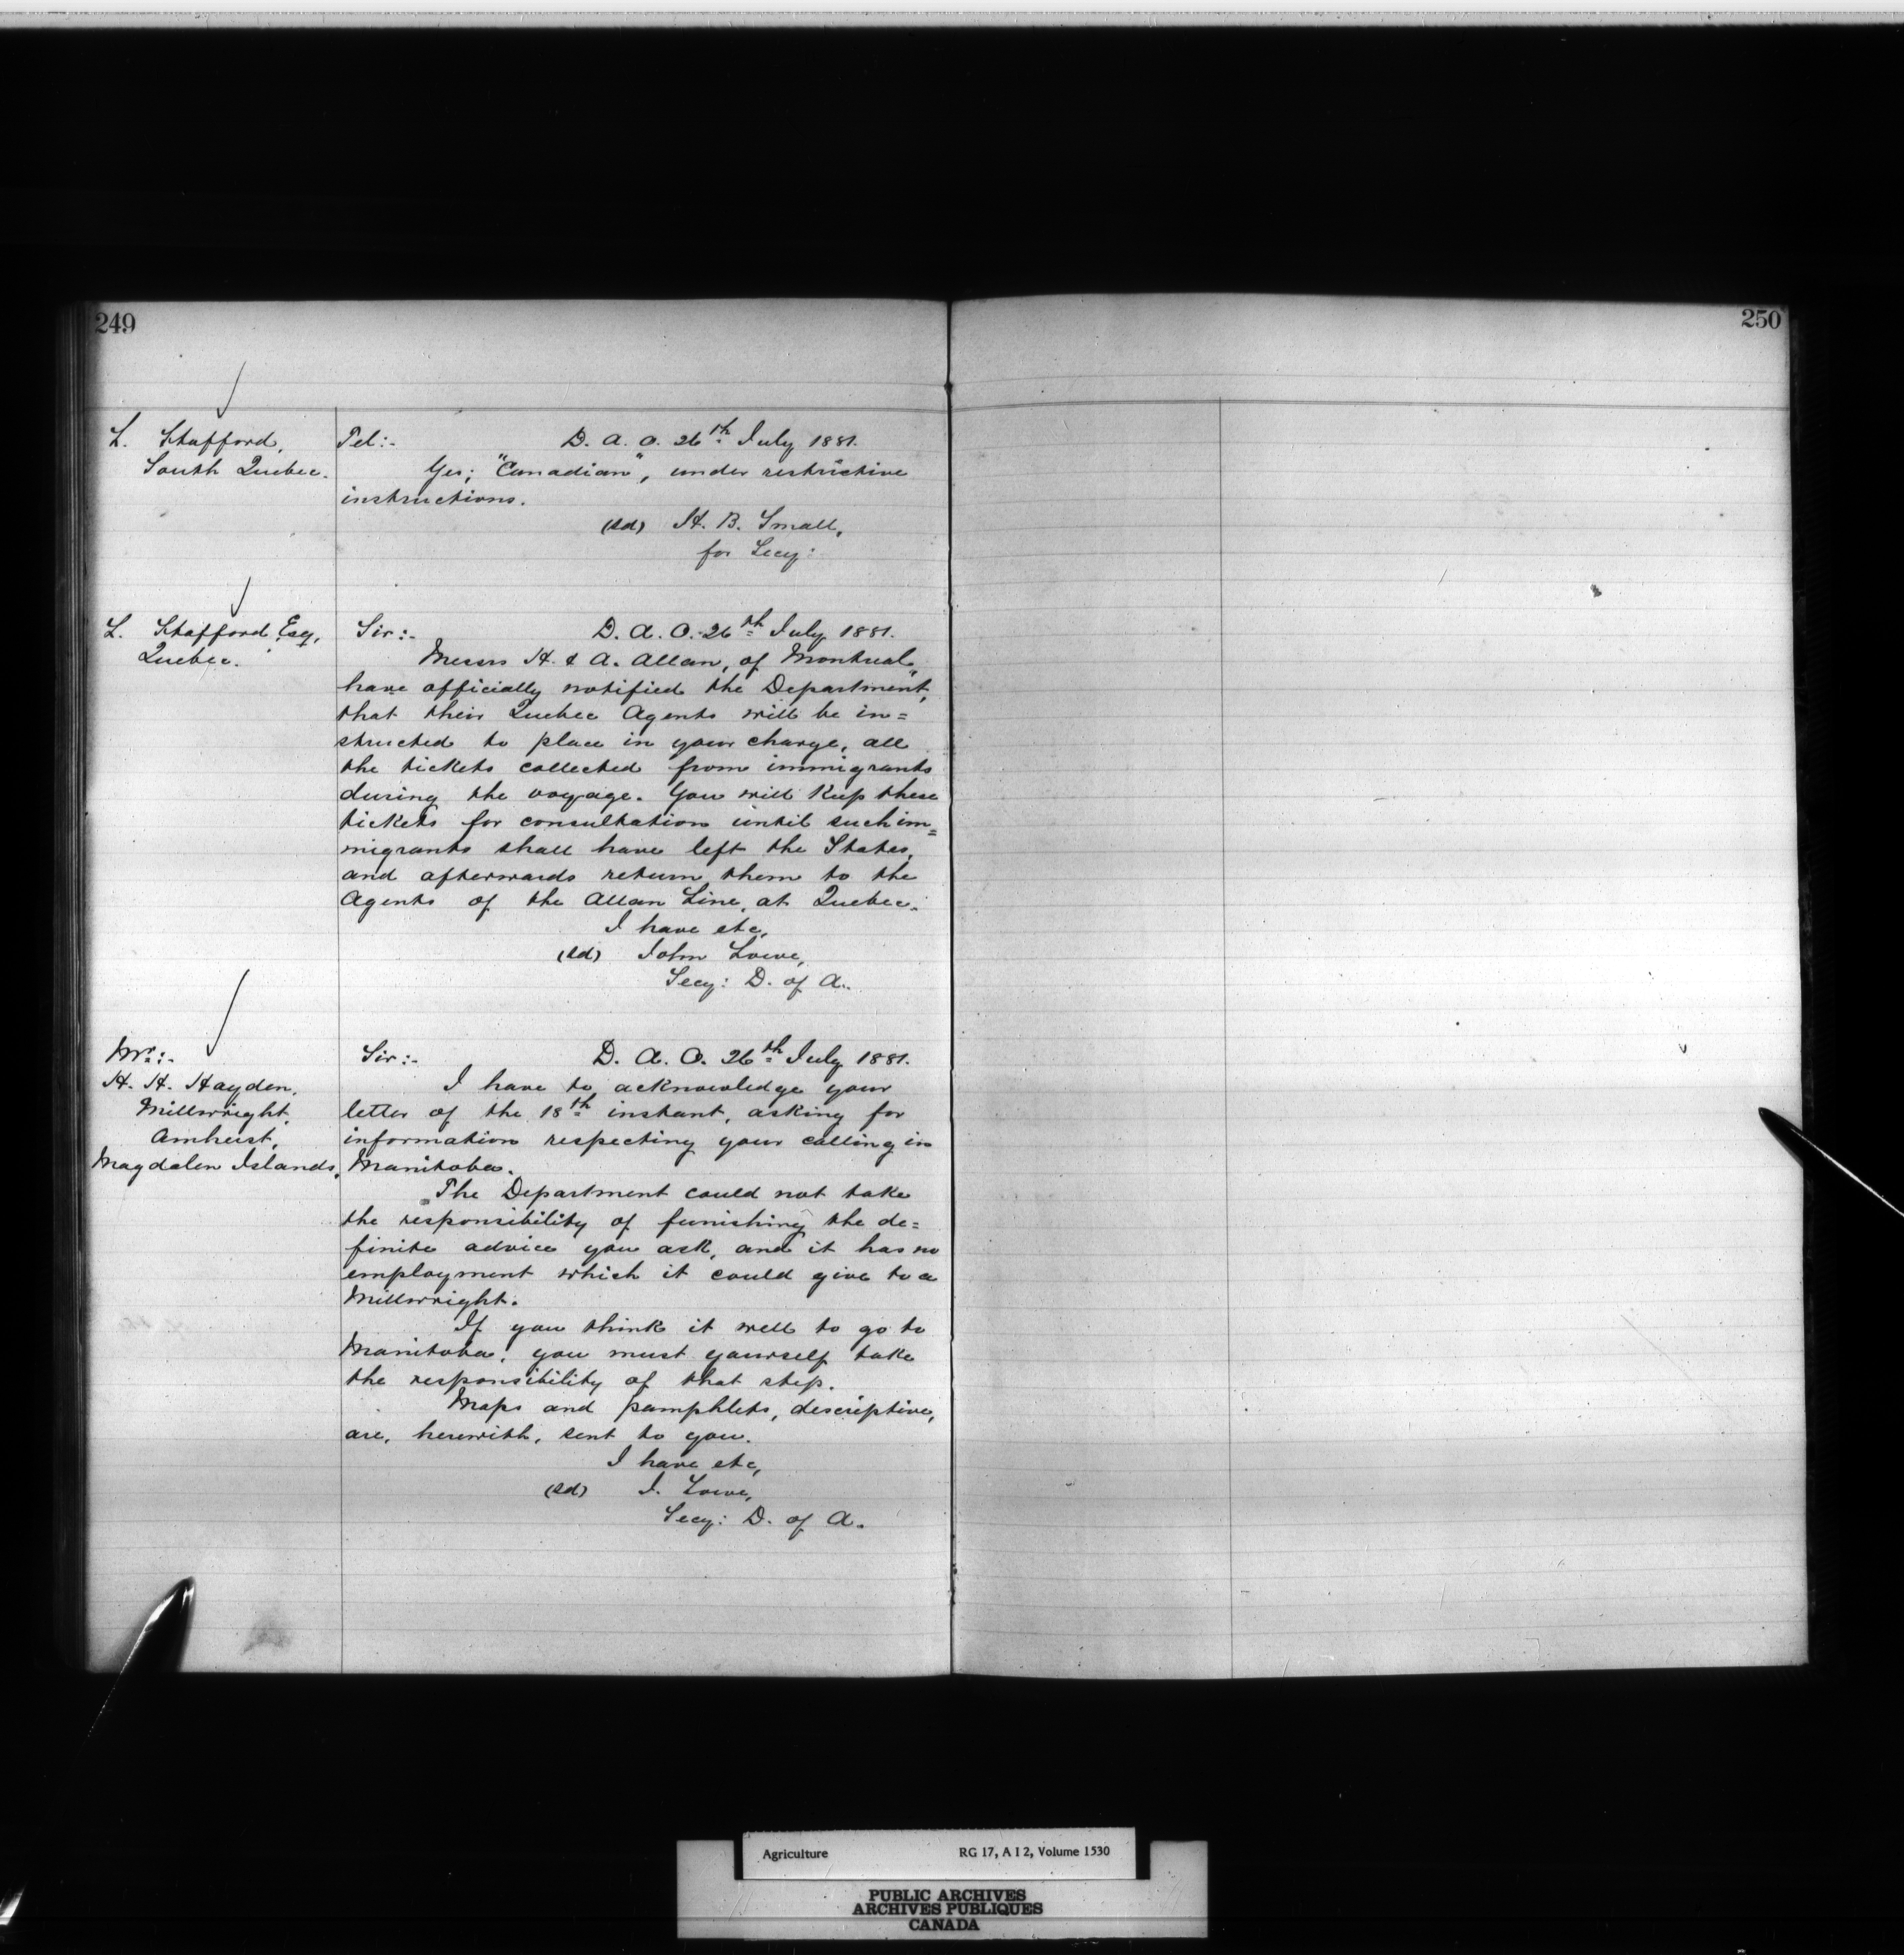 249
250
L. Stafford,
South Quebec.
Tel:- D. A. O. 26th July 1881.
Yes; "Canadian", under restrictive
instructions.
(sd) H. B. Small,
for Secy:
L. Stafford Esq,
Quebec.
Sir:- D. A. O. 26th July 1881.
Messrs H. & A. Allan, of Montreal,
have officially notified the Department,
that their Quebec Agents will be in=
structed to place in your charge, all
the tickets collected from immigrants
during the voyage. You will keep these
tickets for consultation until such im=
migrants shall have left the States,
and afterwards return them to the
Agents of the Allan Line, at Quebec.
I have etc,
(sd) John Lowe,
Secy: D. of A.
Mr:-
H. H. Hayden,
Millwright,
Amherst,
Magdalen Islands.
Sir:- D. A. O. 26th July 1881.
I have to acknowledge your
letter of the 18th instant, asking for
information respecting your calling in
Manitoba.
The Department could not take
the responsibility of funishing the de=
finite advice you ask, and it has no
employment which it could give to a
Millwright.
If you think it well to go to
Manitoba, you must yourself take
the responsibility of that step.
Maps and pamphlets, descriptive,
are, herewith, sent to you.
I have etc,
(sd) J. Lowe,
Secy: D. of A.
Agriculture RG 17, A I 2, Volume 1530
PUBLIC ARCHIVES
ARCHIVES PUBLIQUES
CANADA